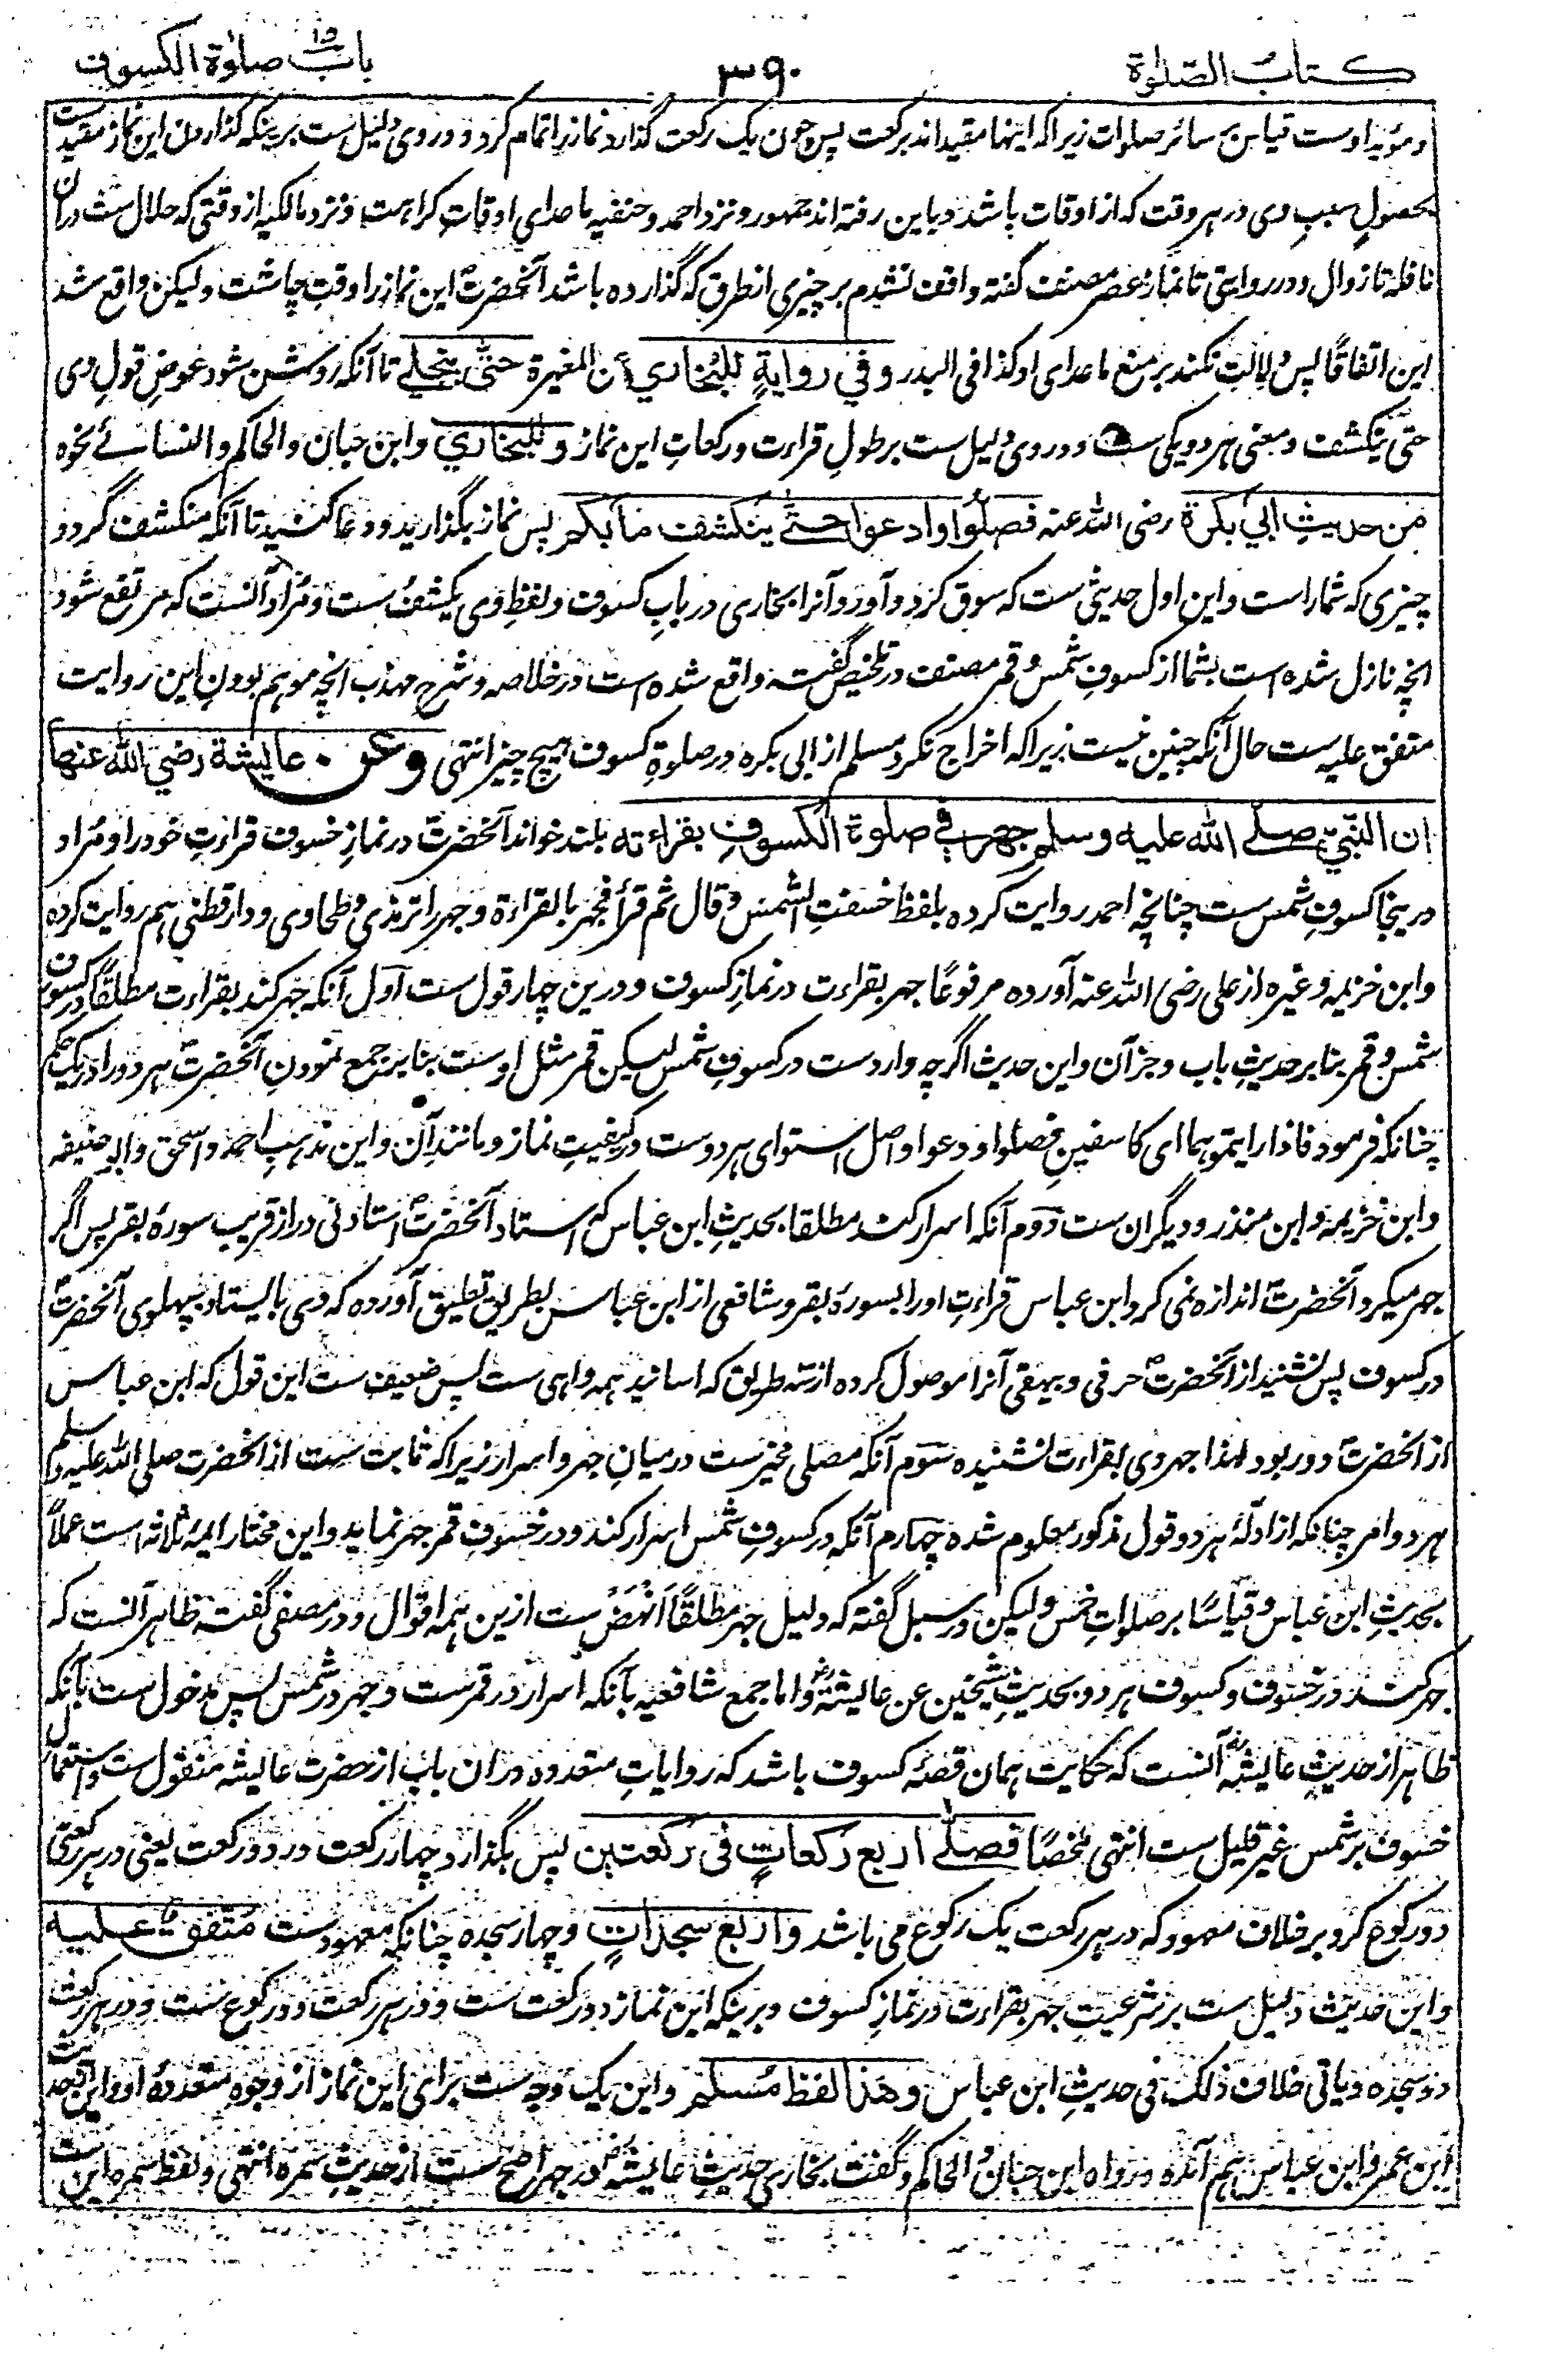 کتاب الصلوٰة
۳۹۰
باب ۱۵ صلوٰة الکسوف
و مؤید اوست قیاس بر سائر صلوات زیرا که اینها مقید اند برکعت پس چون یک رکعت گذارد نماز را تمام کرد و در وی دلیل ست برینکه گذاردن این نماز مقید ست
بحصولِ سببِ وی در هر وقت که از اوقات باشد و باین رفته اند جمهور و نزد احمد و حنفیه ماعدای اوقاتِ کراهت و نزد مالکیه از وقتی که حلال ست دران
نافله تا زوال و در روایتی تا نماز عصر مصنف گفته واقف نشدم بر چیزی از طرق که گذارده باشد آنحضرتؐ این نماز را وقتِ چاشت ولیکن واقع شد
این اتفاقًا پس دلالت نکند بر منع ماعدای او کذا فی البدر وفي روایةٍ للبُخاري أن المغیرة حتّٰی ینجلے تا آنکه روشن شود عوضِ قولِ وی
حتی ینکشف و معنی هر دو یکی ست و در وی دلیل ست بر طولِ قراءت و رکعاتِ این نماز و للبخاري وابن حبان والحاکم والنسائے نحوه
من حدیثِ ابي بکرة رضی الله عنه فصلّوا وادعوا حتّٰے ینکشف ما بکم پس نماز بگذارید و دعا کنید تا آنکه منکشف گردد
چیزی که شما راست و این اول حدیثی ست که سوق کرد و آورد آنرا بخاری در بابِ کسوف و لفظِ وی یکشف ست و مراد آنست که مرتفع شود
انچه نازل شده است بشما از کسوفِ شمس و قمر مصنف در تلخیص گفته واقع شده است در خلاصه و شرح مهذب انچه موهم بودنِ این روایت
متفق علیه ست حال آنکه چنین نیست زیرا که اخراج نکرد مسلم از ابی بکره در صلوةِ کسوف هیچ چیز انتهی وعن عایشة رضي الله عنها
ان النّبيّ صلے الله علیه وسلم جهر في صلوة الکسوفِ بقراءته بلند خواند آنحضرتؐ در نمازِ خسوف قراءتِ خود را و مراد
درینجا کسوفِ شمس ست چنانچه احمد روایت کرده بلفظ خسفتِ الشمس و قال ثم قرأ فجهر بالقراءة و جهر را ترمذی و طحاوی و دارقطنی هم روایت کرده
و ابن خزیمه و غیره از علی رضی الله عنه آورده مرفوعًا جهر بقراءت در نمازِ کسوف و درین چهار قول ست اول آنکه جهر کند بقراءت مطلقًا در کسوف
شمس و قمر بنا بر حدیثِ باب و جز آن و این حدیث اگرچه وارد ست در کسوفِ شمس لیکن قمر مثل اوست بنابر جمع نمودنِ آنحضرتؐ هر دو را در یک حکم
چنانکه فرمود فاذا رایتموهما ای کاسفینِ فصلوا و دعوا و اصل استوای هر دوست در کیفیتِ نماز و مانندِ آن و این مذهبِ احمد و اسحق و ابو حنیفه
و ابن خزیمه و ابن منذر و دیگران ست دوم آنکه اسرار کند مطلقا بحدیثِ ابن عباس که استاد آنحضرتؐ استادنی دراز قریب سورهٔ بقر پس اگر
جهر میکرد آنحضرتؐ اندازه نمی کرد ابن عباس قراءتِ او را بسورهٔ بقر و شافعی از ابن عباس بطریق تعلیق آورده که وی بایستاد بپهلوی آنحضرتؐ
در کسوف پس نشنید از آنحضرتؐ حرفی و بیهقی آنرا موصول کرده از سه طریق که اسانید همه واهی ست پس ضعیف ست این قول که ابن عباس
از آنحضرتؐ دور بود لهذا جهر وی بقراءت نشنیده سوم آنکه مصلی مخیر ست درمیانِ جهر و اسرار زیرا که ثابت ست از انحضرت صلی الله علیه وسلم
هر دو امر چنانکه از ادلّهٔ هر دو قول مذکور معلوم شده چهارم آنکه در کسوفِ شمس اسرار کند و در خسوفِ قمر جهر نماید و این مختار ایمهٔ ثلاثه است عملًا
بحدیثِ ابن عباس و قیاسًا بر صلواتِ خمس ولیکن در سبل گفته که دلیل جهر مطلقًا اَنهَض ست ازین همه اقوال و در مصفی گفته ظاهر آنست که
جهر کند در خسوف و کسوف هر دو بحدیثِ شیخین عن عایشةؓ و اما جمع شافعیه بآنکه اسرار در قمرست و جهر در شمس پس مدخول ست بآنکه
ظاهر از حدیثِ عایشهؓ آنست که حکایت همان قصهٔ کسوف باشد که روایاتِ متعدده دران باب از حضرت عایشه منقول ست و استعمال
خسوف بر شمس غیر قلیل ست انتهی ملخصًا فصلّٰے اربع رکعاتٍ في رکعتین پس بگذارد چهار رکعت در دو رکعت یعنی در هر رکعتی
دو رکوع کرد بر خلاف معهود که در هر رکعت یک رکوع می باشد واربع سجداتٍ و چهار سجده چنانکه معهودست متفقٌ علیه
و این حدیث دلیل ست بر شرعیتِ جهر بقراءت در نمازِ کسوف و برینکه این نماز دو رکعت ست و در هر رکعت دو رکوع ست و در هر رکعت
دو سجده و یاتی خلاف ذلک فی حدیثِ ابن عباس وهذا لفظ مُسلم و این یک وجه ست برای این نماز از وجوهِ متعددهٔ او و این حدیث
ابن عمر و ابن عباس هم آمده و رواه ابن حبان و الحاکم و گفت بخاری حدیثِ عایشهؓ در جهر اصح ست از حدیثِ سمره انتهی و لفظِ سمره این ست